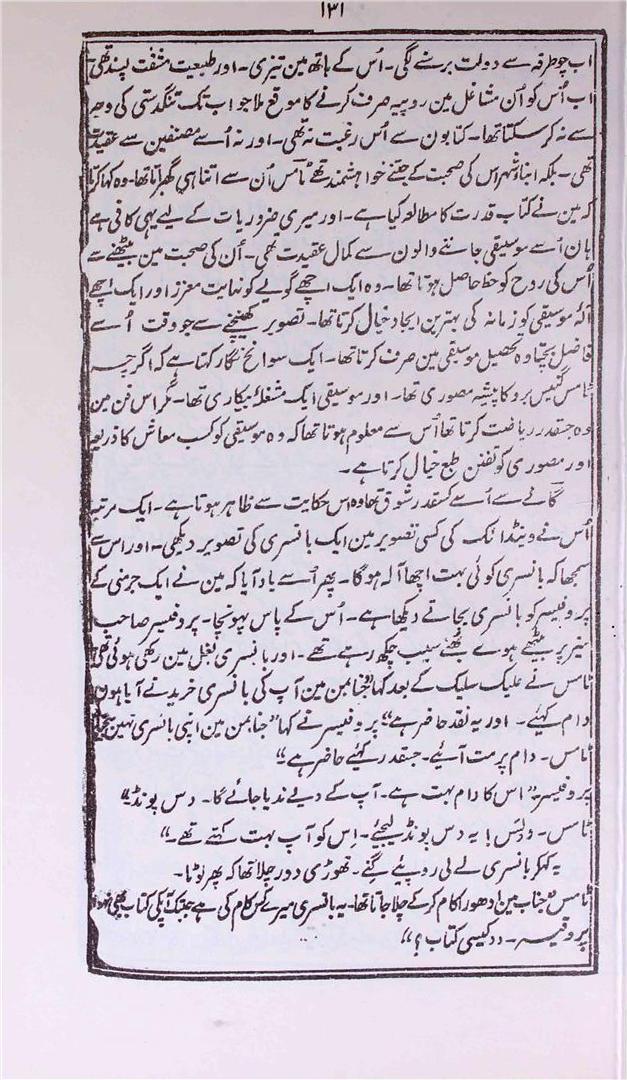 ۱۳۱
اب چوطرفہ سے دولت برسنے لگی۔ اُس کے ہاتھ مین تیزی۔ اور طبیعت مشقت پسند تھی
اب اُس کو اُن مشاغل مین روپیہ صرف کرنے کا موقع ملا جو اب تک تنگدستی کی وجہ
سے نہ کر سکتا تھا۔ کتابون سے اُس رغبت نہ تھی۔ اور نہ اُسے مصنفین سے عقیدت
تھی۔ بلکہ ابناءِ شہر اس کی صحبت کے جتنے خواہشمند تھے ٹامس اُن سے اتنا ہی گھبراتا تھا۔ وہ کہا کرتا
کہ مین نے کتاب قدرت کا مطالعہ کیا ہے۔ اور میری ضروریات کے لیے یہی کافی ہے
ہان اُسے موسیقی جاننے والون سے کمال عقیدت تھی۔ اُن کی صحبت مین بیٹھنے سے
اُس کی روح کو حظ حاصل ہوتا تھا۔ وہ ایک اچھے گویے کو نہایت معزز اور ایک اچھے
آلۂ موسیقی کو زمانہ کی بہترین ایجاد خیال کرتا تھا۔ تصویر کھینچنے سے جو وقت اُسے
فاضل بچتا وہ تحصیل موسیقی مین صرف کرتا تھا۔ ایک سوانح نگار کہتا ہے کہ اگرچہ
ٹامس گینس برو کا پیشہ مصوری تھا۔ اور موسیقی ایک مشغلۂ بیکاری تھا۔ مگر اس فن مین
وہ جسقدر ریاضت کرتا تھا اُس سے معلوم ہوتا تھا کہ وہ موسیقی کو کسب معاش کا ذریعہ
اور مصوری کو تفنن طبع خیال کرتا ہے۔
گانے سے اُسے کسقدر شوق تھا وہ اس حکایت سے ظاہر ہوتا ہے۔ ایک مرتبہ
اُس نے وینڈائک کی کسی تصویر مین ایک بانسری کی تصویر دیکھی۔ اور اس سے
سمجھا کہ بانسری کوئی بہت اچھا آلہ ہو گا۔ پھر اُسے یاد آیا کہ مین نے ایک جرمنی کے
پروفیسر کو بانسری بجاتے دیکھا ہے۔ اُس کے پاس پہونچا۔ پروفیسر صاحب
میز پر بیٹھے ہوے بُھنے سیب چکھ رہے تھے۔ اور بانسری بغل مین رکھی ہوئی تھی
ٹامس نے علیک سلیک کے بعد کہا "جنابمن مین آپ کی بانسری خریدنے آیا ہون
دام کہیئے۔ اور یہ نقد حاضر ہے" پروفیسر نے کہا "جنابمن مین اپنی بانسری نہین بیچتا
ٹامس۔ دام پر مت آیئے۔ جسقدر کہیئے حاضر ہے"
پروفیسر "اس کا دام بہت ہے۔ آپ کے دیے ندیا جائے گا۔ دس پونڈ"
ٹامس۔ دبس! یہ دس پونڈ لیجیے۔ اِس کو آپ بہت کہتے تھے۔"
یہ کہکر بانسری لے لی روپیئے گِنے۔ تھوڑی دور چلا تھا کہ پھر لوٹا۔
ٹامس "جناب مین ادھورا کام کر کے چلا جاتا تھا۔ یہ بانسری میرے کس کام کی ہے جبتک آپکی کتاب بھی نہو"
پروفیسر۔ "کیسی کتاب؟"